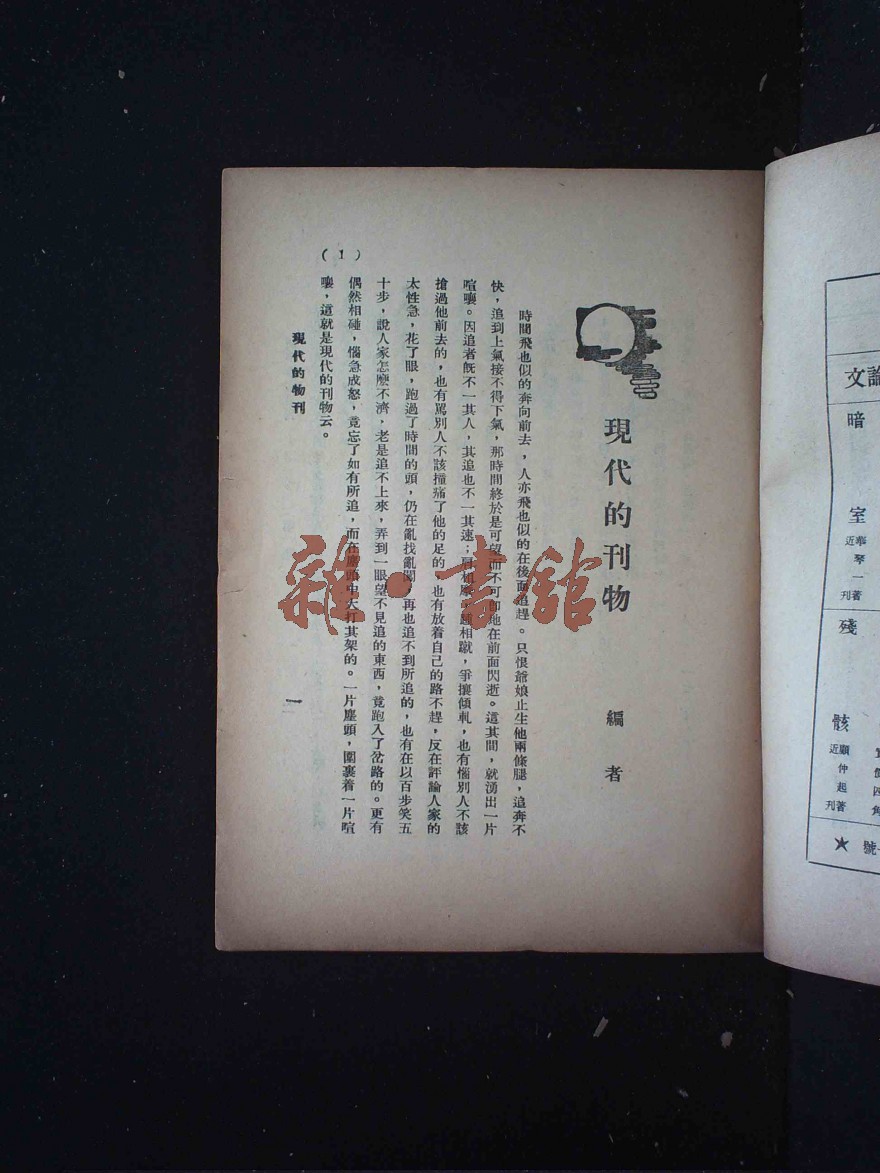 現代的刊物
編者
時間飛也似的奔向前去，人亦飛也似的在後面追趕。只恨爺娘止生他兩條腿，追奔不
快，追到上氣接不得下氣，那時間終於是可望而不可即地在前面閃逝。這其間，就湧出一片
喧嚷。因追者旣不一其人，其追也不一其速；肩相摩，相蹴，爭攘傾軋，也有惱別人不該
搶過他前去的，也有罵別人不該撞痛了他的足的，也有放着自己的路不趕，反在評論人家的
太性急，花了眼，跑過了時間的頭，仍在亂找亂闖，再也追不到所追的，也有在以百步笑五
十步，說人家怎麼不濟，老是追不上來，弄到一眼望不見追的東西，竟跑入了岔路的。更有
偶然相碰，惱急成怒，竟忘了如有所追，而在塵頭中大打其架的。一片塵頭，圍裹着一片喧
嚷，這就是現代的刊物云。
(1)
現代的物刊
一
雜·書館
論文
暗室
華琴一著
近刊
殘骸
顧仲起著
近刊
角
★
號